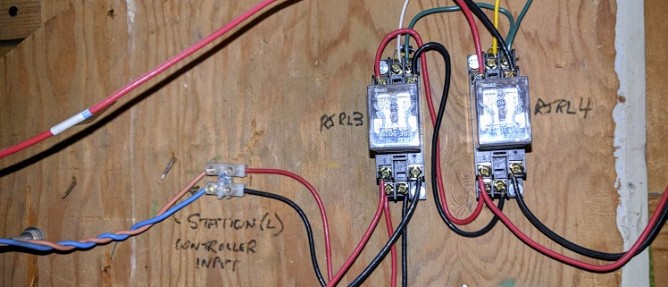 RJRL3
RJRL4
STATION(L)
CONTROLLER
INPUT